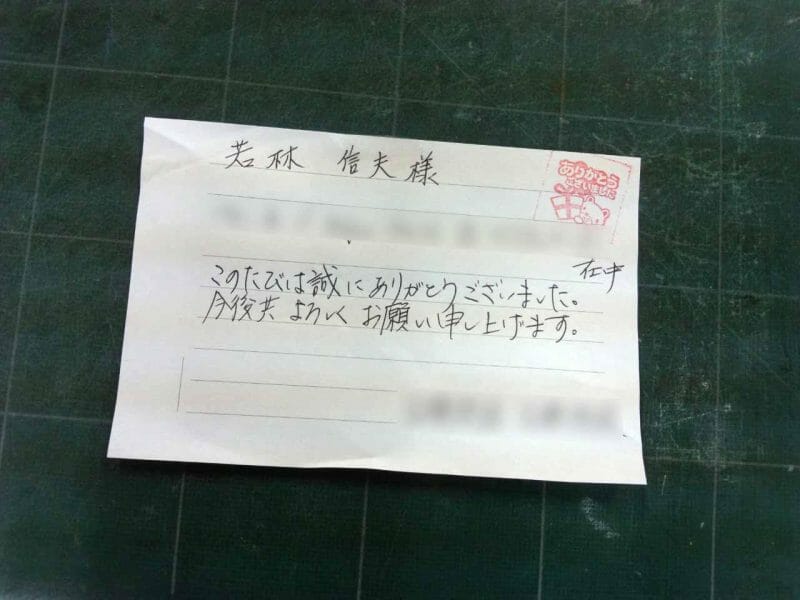 若林 信夫様
ありがとう
ございました
在中
このたびは誠にありがとうございました。
今後共よろしくお願い申し上げます。